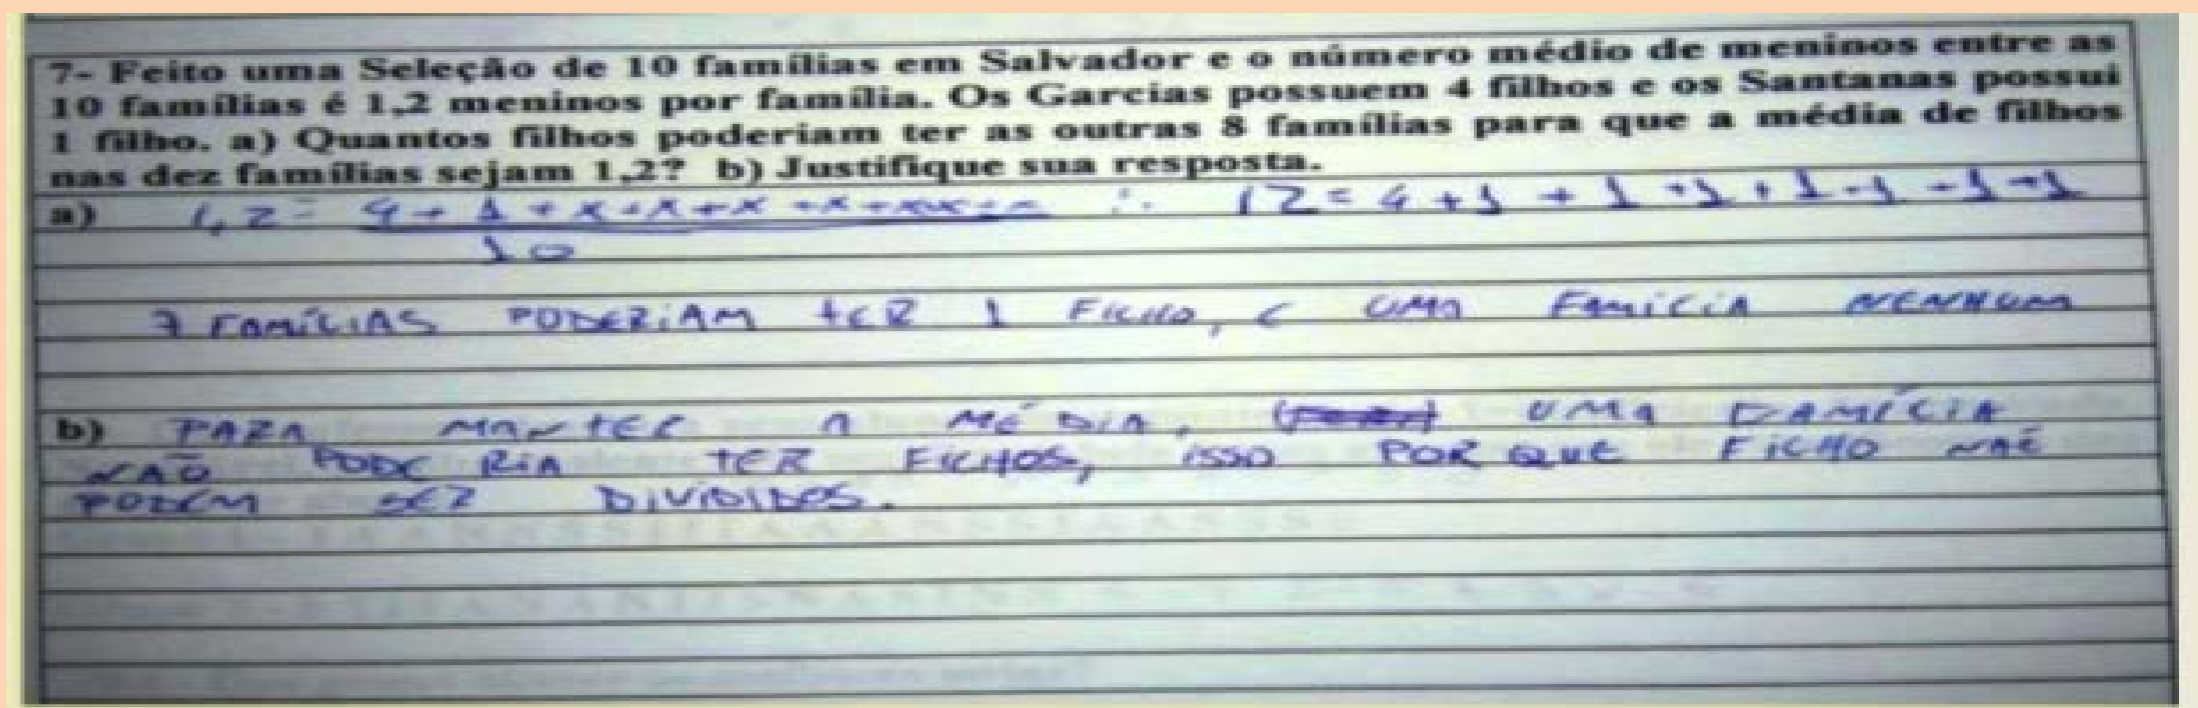 7- Feito uma Seleção de 10 famílias em Salvador e o número médio de meninos entre as
10 famílias é 1,2 meninos por família. Os Garcias possuem 4 filhos e os Santanas possui
1 filho. a) Quantos filhos poderiam ter as outras 8 famílias para que a média de filhos
nas dez famílias sejam 1,2? b) Justifique sua resposta.
a) 1,2 = 4 + 1 + x + x + x + x + x x + x ∴ 12 = 4 + 1 + 1 + 1 + 1 + 1 + 1 + 1
10
7 FAMÍLIAS PODERIAM TER 1 FILHO, E UMA FAMILIA NENHUM
b) PARA MANTER A MÉDIA, UMA FAMÍLIA
NÃO PODERIA TER FILHOS, ISSO PORQUE FILHO NÃO
PODEM SER DIVIDIDOS.